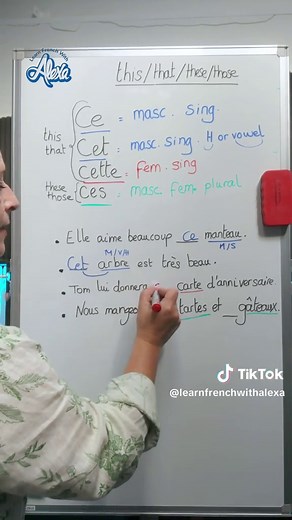 Learn French With
Alexa
this/that/these/those
this
that
Ce = masc. sing.
Cet = masc. sing. H or vowel
Cette = fem. sing
these
those
Ces = masc. fem. plural
• Elle aime beaucoup ce manteau.
M/S
M/V/H
• Cet arbre est très beau.
• Tom lui donnera carte d'anniversaire.
• Nous tartes et _ gâteaux.
TikTok
@learnfrenchwithalexa